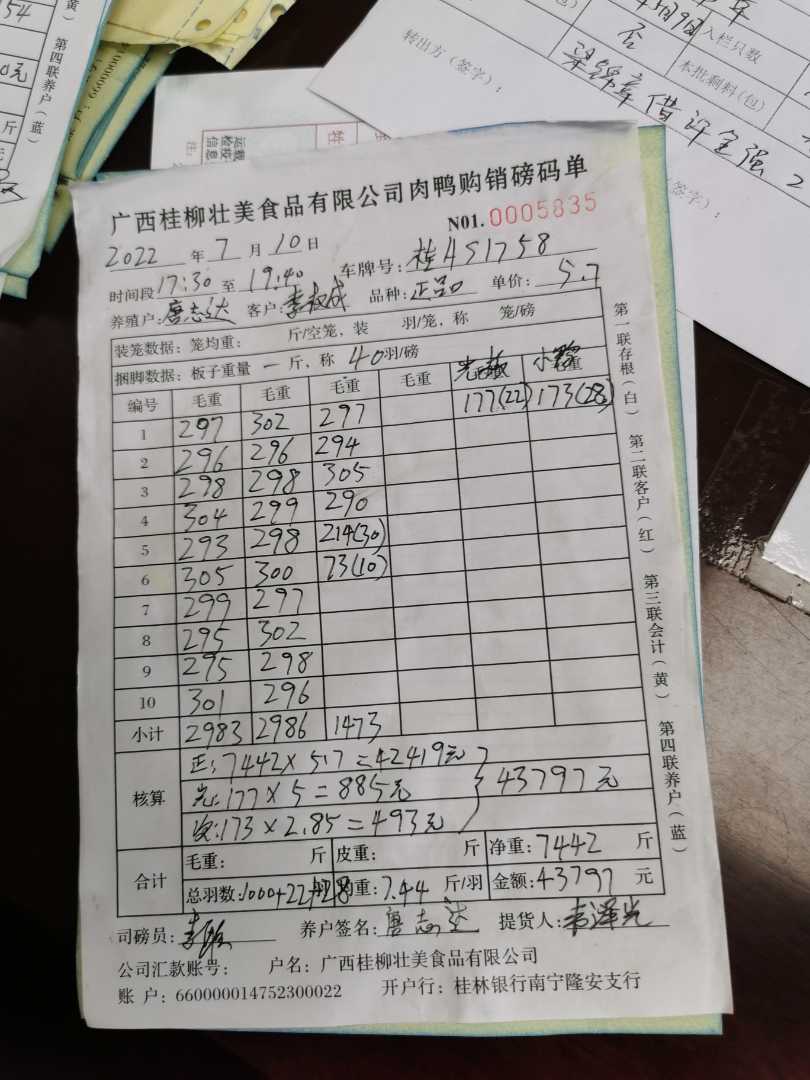 广西桂柳壮美食品有限公司肉鸭购销磅码单
N01. 0005835
2022 年 7 月 10 日
车牌号: 桂A S1758
时间段 17:30 至 19:40
品种: 正品 单价: 5.7
养殖户: 唐志达 客户: 李权成
装笼数据: 笼均重: 斤/空笼, 装 羽/笼, 称 笼/磅
捆脚数据: 板子重量 一 斤, 称 40羽/磅
编号 毛重 毛重 毛重 毛重
1 297 302 297 177(22) 173(28)
2 296 296 294
3 298 298 305
4 304 299 290
5 293 298 214(30)
6 305 300 73(10)
7 299 297
8 295 302
9 295 298
10 301 296
小计 2983 2986 1473
核算
正: 7442×5.7=42419元
光: 177×5=885元
次: 173×2.85=493元
43797元
合计
毛重: 斤 皮重: 斤 净重: 7442 斤
总羽数: 1000+22+28 均重: 7.44 斤/羽 金额: 43797 元
司磅员: 养户签名: 唐志达 提货人:
公司汇款账号: 户名: 广西桂柳壮美食品有限公司
账 户: 660000014752300022 开户行: 桂林银行南宁隆安支行
第一联存根(白) 第二联客户(红) 第三联会计(黄) 第四联养户(蓝)
第四联养户(蓝)
54
0元
斤
转出方(签字):
5月9日
否
入栏只数
本批剩料(包)
梁锦章借许全强2
(签字):